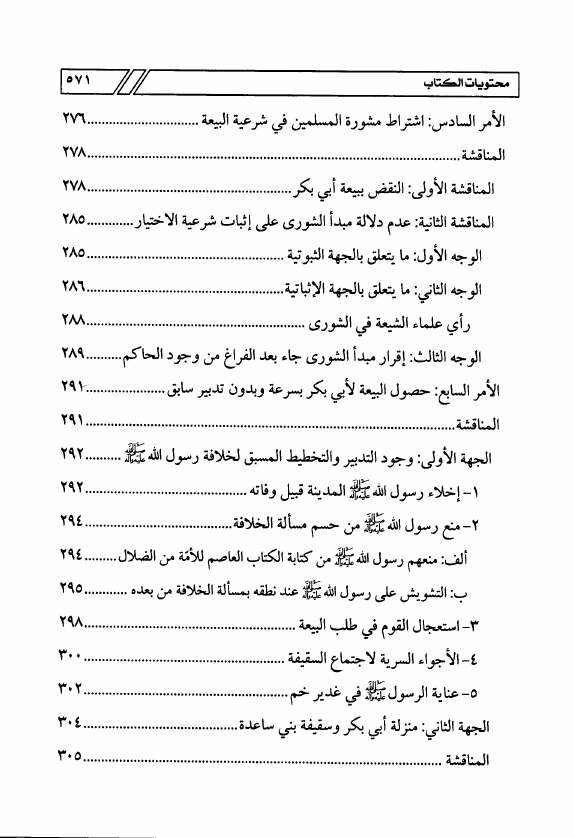 محتويات الكتاب ٥٧١
الأمر السادس: اشتراط مشورة المسلمين في شرعية البيعة ٢٧٦
المناقشة ٢٧٨
المناقشة الأولى: النقض ببيعة أبي بكر ٢٧٨
المناقشة الثانية: عدم دلالة مبدأ الشورى على إثبات شرعية الاختيار ٢٨٥
الوجه الأول: ما يتعلق بالجهة الثبوتية ٢٨٥
الوجه الثاني: ما يتعلق بالجهة الإثباتية ٢٨٦
رأي علماء الشيعة في الشورى ٢٨٨
الوجه الثالث: إقرار مبدأ الشورى جاء بعد الفراغ من وجود الحاكم ٢٨٩
الأمر السابع: حصول البيعة لأبي بكر بسرعة وبدون تدبير سابق ٢٩١
المناقشة ٢٩١
الجهة الأولى: وجود التدبير والتخطيط المسبق لخلافة رسول الله ﷺ ٢٩٢
١- إخلاء رسول الله ﷺ المدينة قبيل وفاته ٢٩٢
٢- منع رسول الله ﷺ من حسم مسألة الخلافة ٢٩٤
ألف: منعهم رسول الله ﷺ من كتابة الكتاب العاصم للأمّة من الضلال ٢٩٤
ب: التشويش على رسول الله ﷺ عند نطقه بمسألة الخلافة من بعده ٢٩٥
٣- استعجال القوم في طلب البيعة ٢٩٨
٤- الأجواء السرية لاجتماع السقيفة ٣٠٠
٥- عناية الرسول ﷺ في غدير خم ٣٠٢
الجهة الثاني: منزلة أبي بكر وسقيفة بني ساعدة ٣٠٤
المناقشة ٣٠٥